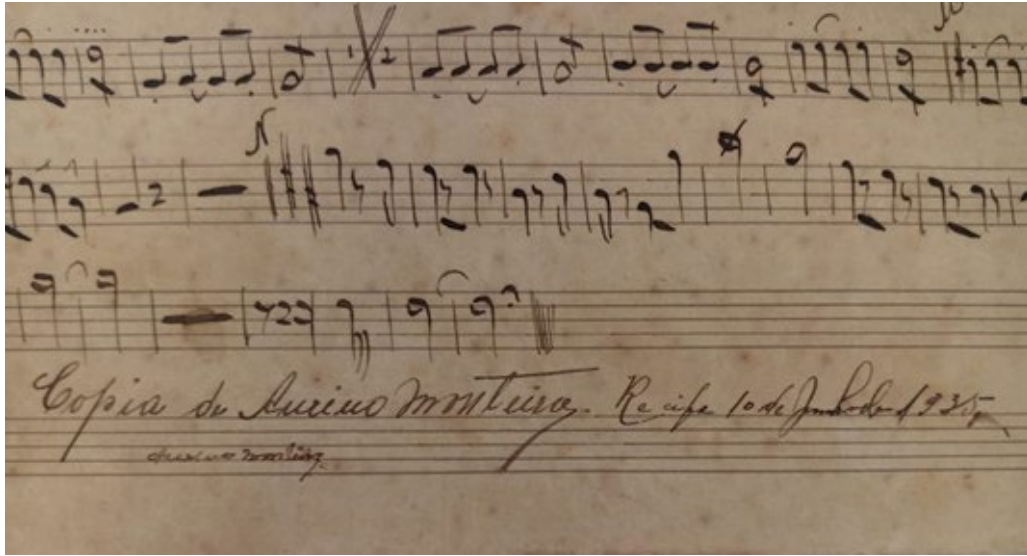 Copia de Aureino Monteiro. Recife 10 de Junho de 1935
Aureino Monteiro